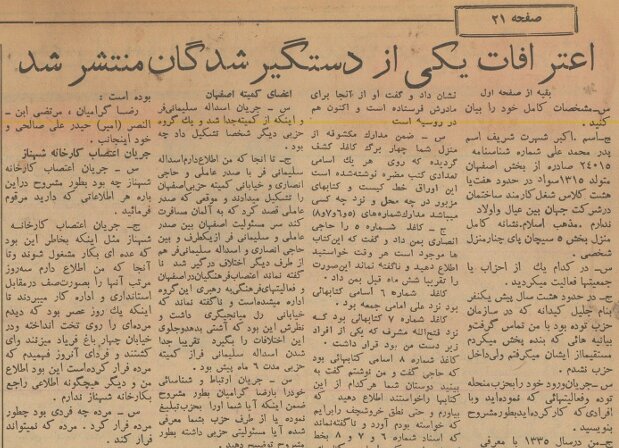 صفحه ۲۱
اعترافات یکی از دستگیرشدگان منتشر شد
بقیه از صفحه اول
س- مشخصات کامل خود را بیان
کنید.
ج- اسم . اکبر شهرت شریف اسم
پدر محمد علی شماره شناسنامه
۲۴۰۱۵ صادره از بخش اصفهان
متولد ۱۳۱۵ سواد در حدود هفت یا
هشت کلاس شغل کارمند ساختمان
در شرکت جهان بین عیال و اولاد
ندارم . مذهب اسلام. نشانه کامل
منزل بخش ۵ سیچان پای چنار منزل
شخصی .
س- در کدام یک از احزاب یا
جمعیتها فعالیت میکردید .
ج- در حدود هشت سال پیش یکنفر
بنام جلیل کیدانه که در سازمان
حزب توده بود با من تماس گرفت و
بیانیه هائی که بنده پخش میکردم
مستقیما از ایشان میگرفتم ولی داخل
حزب نشدم .
س- جریان ورود خود را بحزب منحله
توده و فعالیتهائی که نموده اید و با
افرادی که کار کرده اید بطور مشروح
بنویسید .
ج- من در سال ۱۳۳۵ با معرفی
نشان داد و گفت او از آنجا برای
مادرش فرستاده است و اکنون هم
در روسیه است
س - ضمن مدارک مکشوفه از
منزل شما چهار برگ کاغذ کشف
گردیده که روی هر یک اسامی
تعدادی کتب مضره نوشته شده است
این اوراق خط کیست و کتابهای
مزبور در چه محل و نزد چه کسی
میباشد مدارک شماره های (۵ و ۶ و ۷ و ۸)
ج - کاغذ شماره ۵ را حاجی
انصاری بمن داد و گفت که این کتاب
ها موجود است هر وقت خواستید
اطلاع دهید و ناگفته نماند این صورت
را تقریبا شش ماه قبل بمن داد .
کاغذ شماره ۶ اسامی کتابهائی
بود نزد علی امامی جمعه بود .
کاغذ شماره ۷ کتابهائی بود که
نزد فتح الله مشرف که یکی از افراد
زیر دست من بود قرار داشت .
کاغذ شماره ۸ اسامی کتابهائی بود
که حاجی گفت و من نوشتم گفت به
ببینید دوستان شما هر کدام از این
کتابها را خواستند اطلاع دهید که
بیاورم و حتی نطق خروشچف را برایم
که خواسته بودم آورد و ناگفته نماند
که اسناد شماره ۶ و ۷ و ۸ بخط
اعضای کمیته اصفهان
س - جریان اسداله سلیمانی فر
و اینکه از کمیته جدا شد و یک گروه
حزبی دیگر شخصا تشکیل داد چه
بود .
ج- تا آنجا که من اطلاع دارم اسداله
سلیمانی فر با صدر عاملی و حاجی
انصاری و خیابانی کمیته حزبی اصفهان
را تشکیل میدادند و موقعی که صدر
عاملی قصد کرد که به آلمان مسافرت
کند سر مسئولیت اصفهان بین صدر
عاملی و سلیمانی فر از یکطرف و بین
حاجی انصاری و اسداله سلیمانی فر هم
از طرف دیگر اختلاف درگیر شد تا
گفته نماند اعتصاب فرهنگیان در اصفهان
و فعالیتهای فرهنگی به رهبری این گروه
اداره میشده است و ناگفته نماند که
خیابانی رل میانجیگری داشت و
نظرش این بود که آشتی بدهد و جلوی
این اختلافات را بگیرد تقریبا جدا
شدن اسداله سلیمانی فر از کمیته
حزبی مدت ۶ ماه پیش بود .
س - جریان ارتباط و شناسائی
خود را با رضا گرامیان بطور مشروح
ضمن اینکه آیا شما او را بحزب تبلیغ
نموده یا از طرف حزب بشما معرفی
شده آیا مسئولیتی حزبی داشته بطور
مشروح توضیح دهید .
بوده است :
رضا گرامیان ، مرتضی این-
النصر (امیر) حیدر علی صالحی و
خود اینجانب .
جریان اعتصاب کارخانه شهناز
س - جریان اعتصاب کارخانه
شهناز چه بود بطور مشروح در این
باره هر اطلاعاتی که دارید مرقوم
فرمائید .
ج- جریان اعتصاب کارخانه
شهناز مثل اینکه بخاطر این بود
که عده ای بکار مشغول شوند و تا
آنجا که من اطلاع دارم سه روز
مرتب آنها را بصورت صف در مقابل
استانداری و اداره کار میبردند تا
اینکه یک روز عصر بود که دیدم
مرده ای را روی تخت انداخته و در
خیابان چهار باغ فریاد میزنند وای
کشتند و فردای آنروز فهمیدم که
مرده فرار کرده است این بود اطلاع
من و دیگر هیچگونه اطلاعی راجع
بکارخانه شهناز ندارم .
س - مرده چه فردی بود چطور
فرار کرد . مرده که نمیتواند
فرار کند .